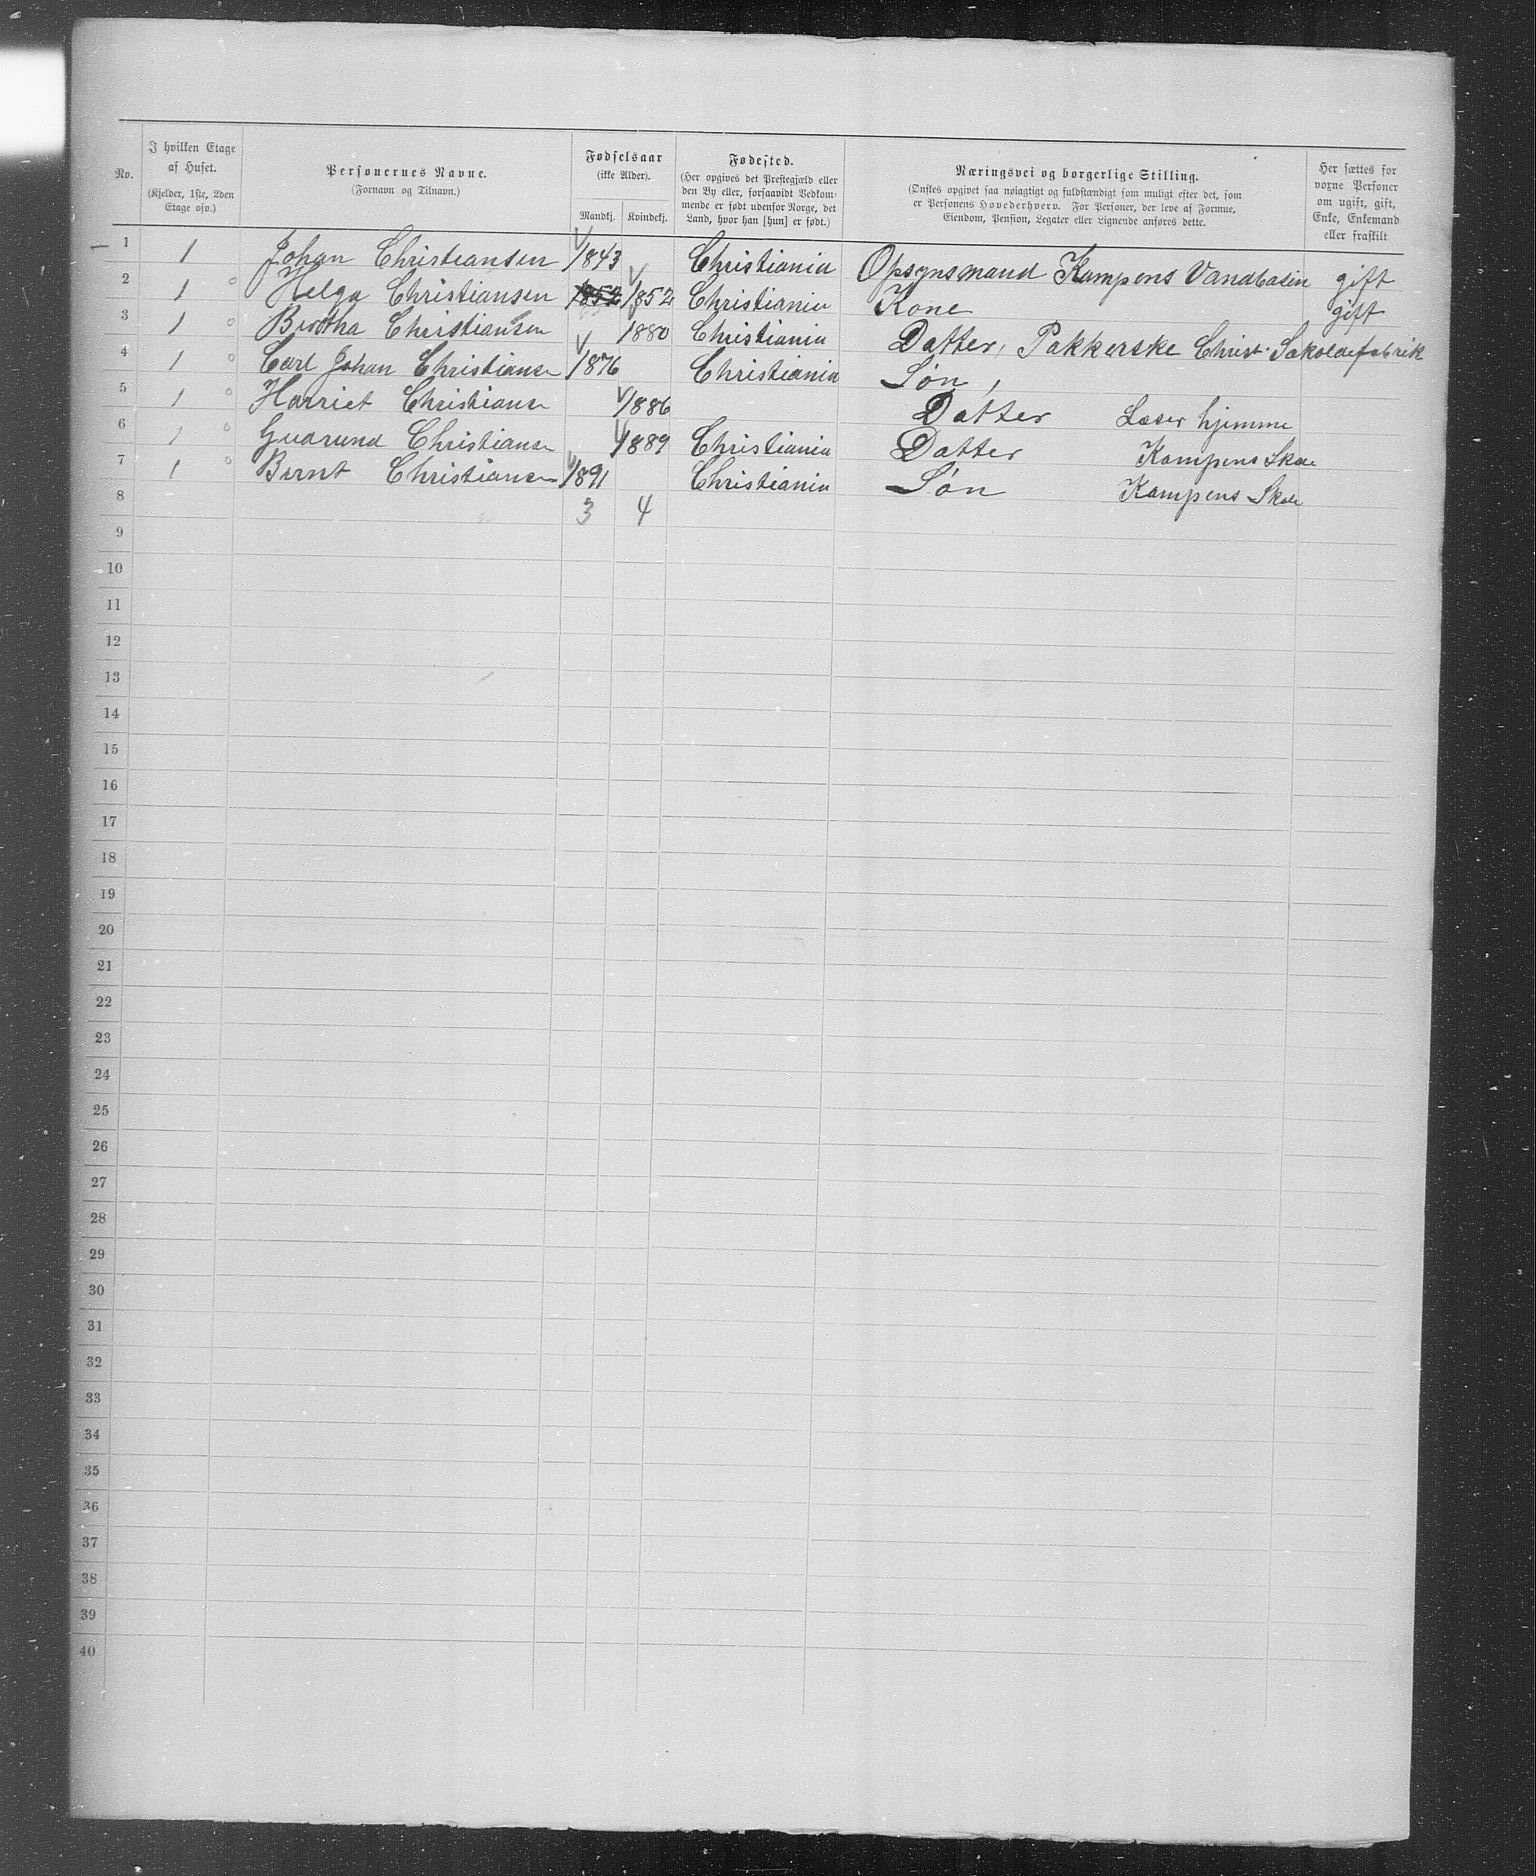 No.
I hvilken Etage af Huset.
(Kjelder, 1ste, 2den Etage osv.)
Personernes Navne.
(Fornavn og Tilnavn.)
Fødselsaar
(ikke Alder).
Mandkj. Kvindekj.
Fødested.
(Her opgives det Prestegjæld eller
den By eller, forsaavidt Vedkom-
mende er født udenfor Norge, det
Land, hvor han [hun] er født.)
Næringsvei og borgerlige Stilling.
(Ønskes opgivet saa nøiagtigt og fuldstændigt som muligt efter det, som
er Personens Hovederhverv. For Personer, der leve af Formue,
Eiendom, Pension, Legater eller Lignende anføres dette.
Her sættes for
vorne Personer
om ugift, gift,
Enke, Enkemand
eller fraskilt
1 1 Johan Christiansen 1843 Christiania Opsynsmand Kampens Vandbasin gift
2 1 Helga Christiansen 1852 1852 Christiania Kone gift
3 1 Bertha Christiansen 1880 Christiania Datter, Pakkerske Christ. Sokoladefabrik
4 1 Carl Johan Christianse 1876 Christiania Søn,
5 1 Harriet Christianse 1886 Datter Læser hjemme
6 1 Gudrund Christianse 1889 Christiania Datter Kampens Skole
7 1 Bernt Christiansen 1891 Christiania Søn Kampens Skole
8 3 4
9
10
11
12
13
14
15
16
17
18
19
20
21
22
23
24
25
26
27
28
29
30
31
32
33
34
35
36
37
38
39
40